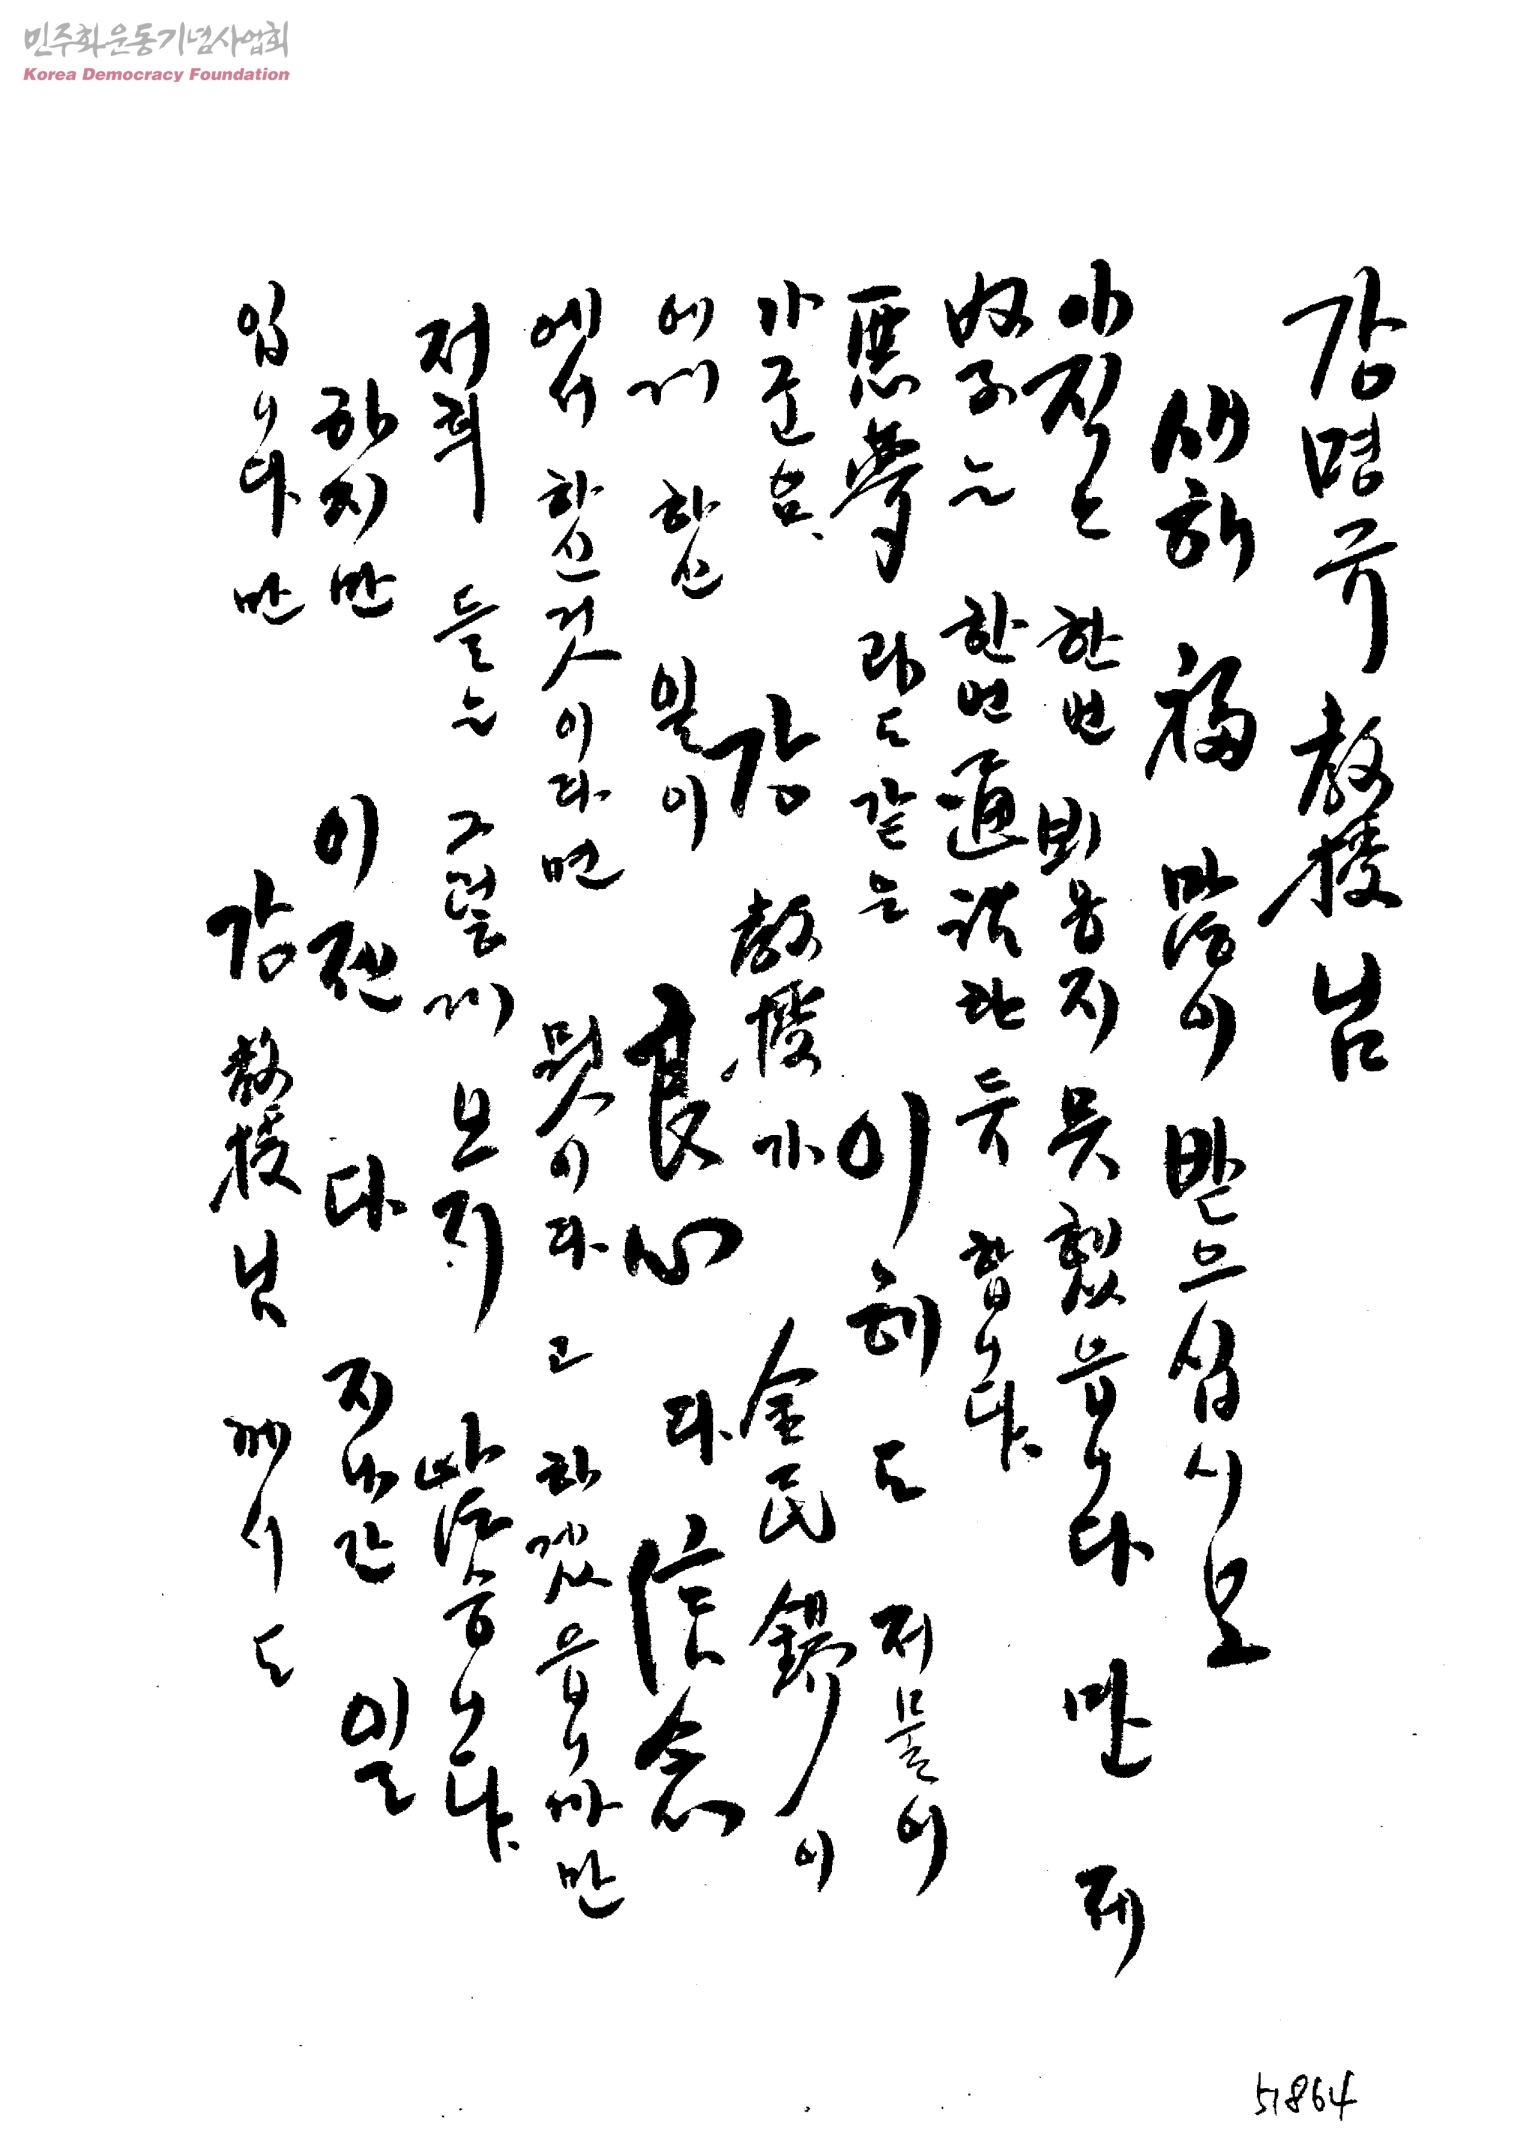 민주화운동기념사업회
Korea Democracy Foundation
강명규 敎授님
새해 福 많이 받으십시오
아직은 한번 뵈옵지 못했읍니다만 제
奴子는 한번 通話한듯 합니다.
惡夢 라도 같은 이해도 저물어
가군요. 강 敎授가 金民錫이
에게 하신 말이 良心 다 信念
에서 하신것 이라면 뭣이라고 하겠읍니까만
저희 들은 그렇게 보지 않습니다.
하지만 이젠 다 지나간 일
입니다만 강 敎授님 께서도
51864